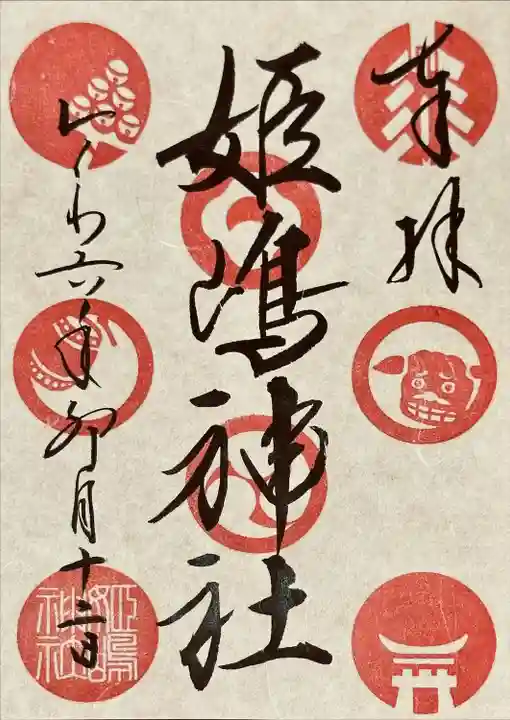 奉拝
姫嶋神社
令わ六年卯月十三日
姫嶋神社